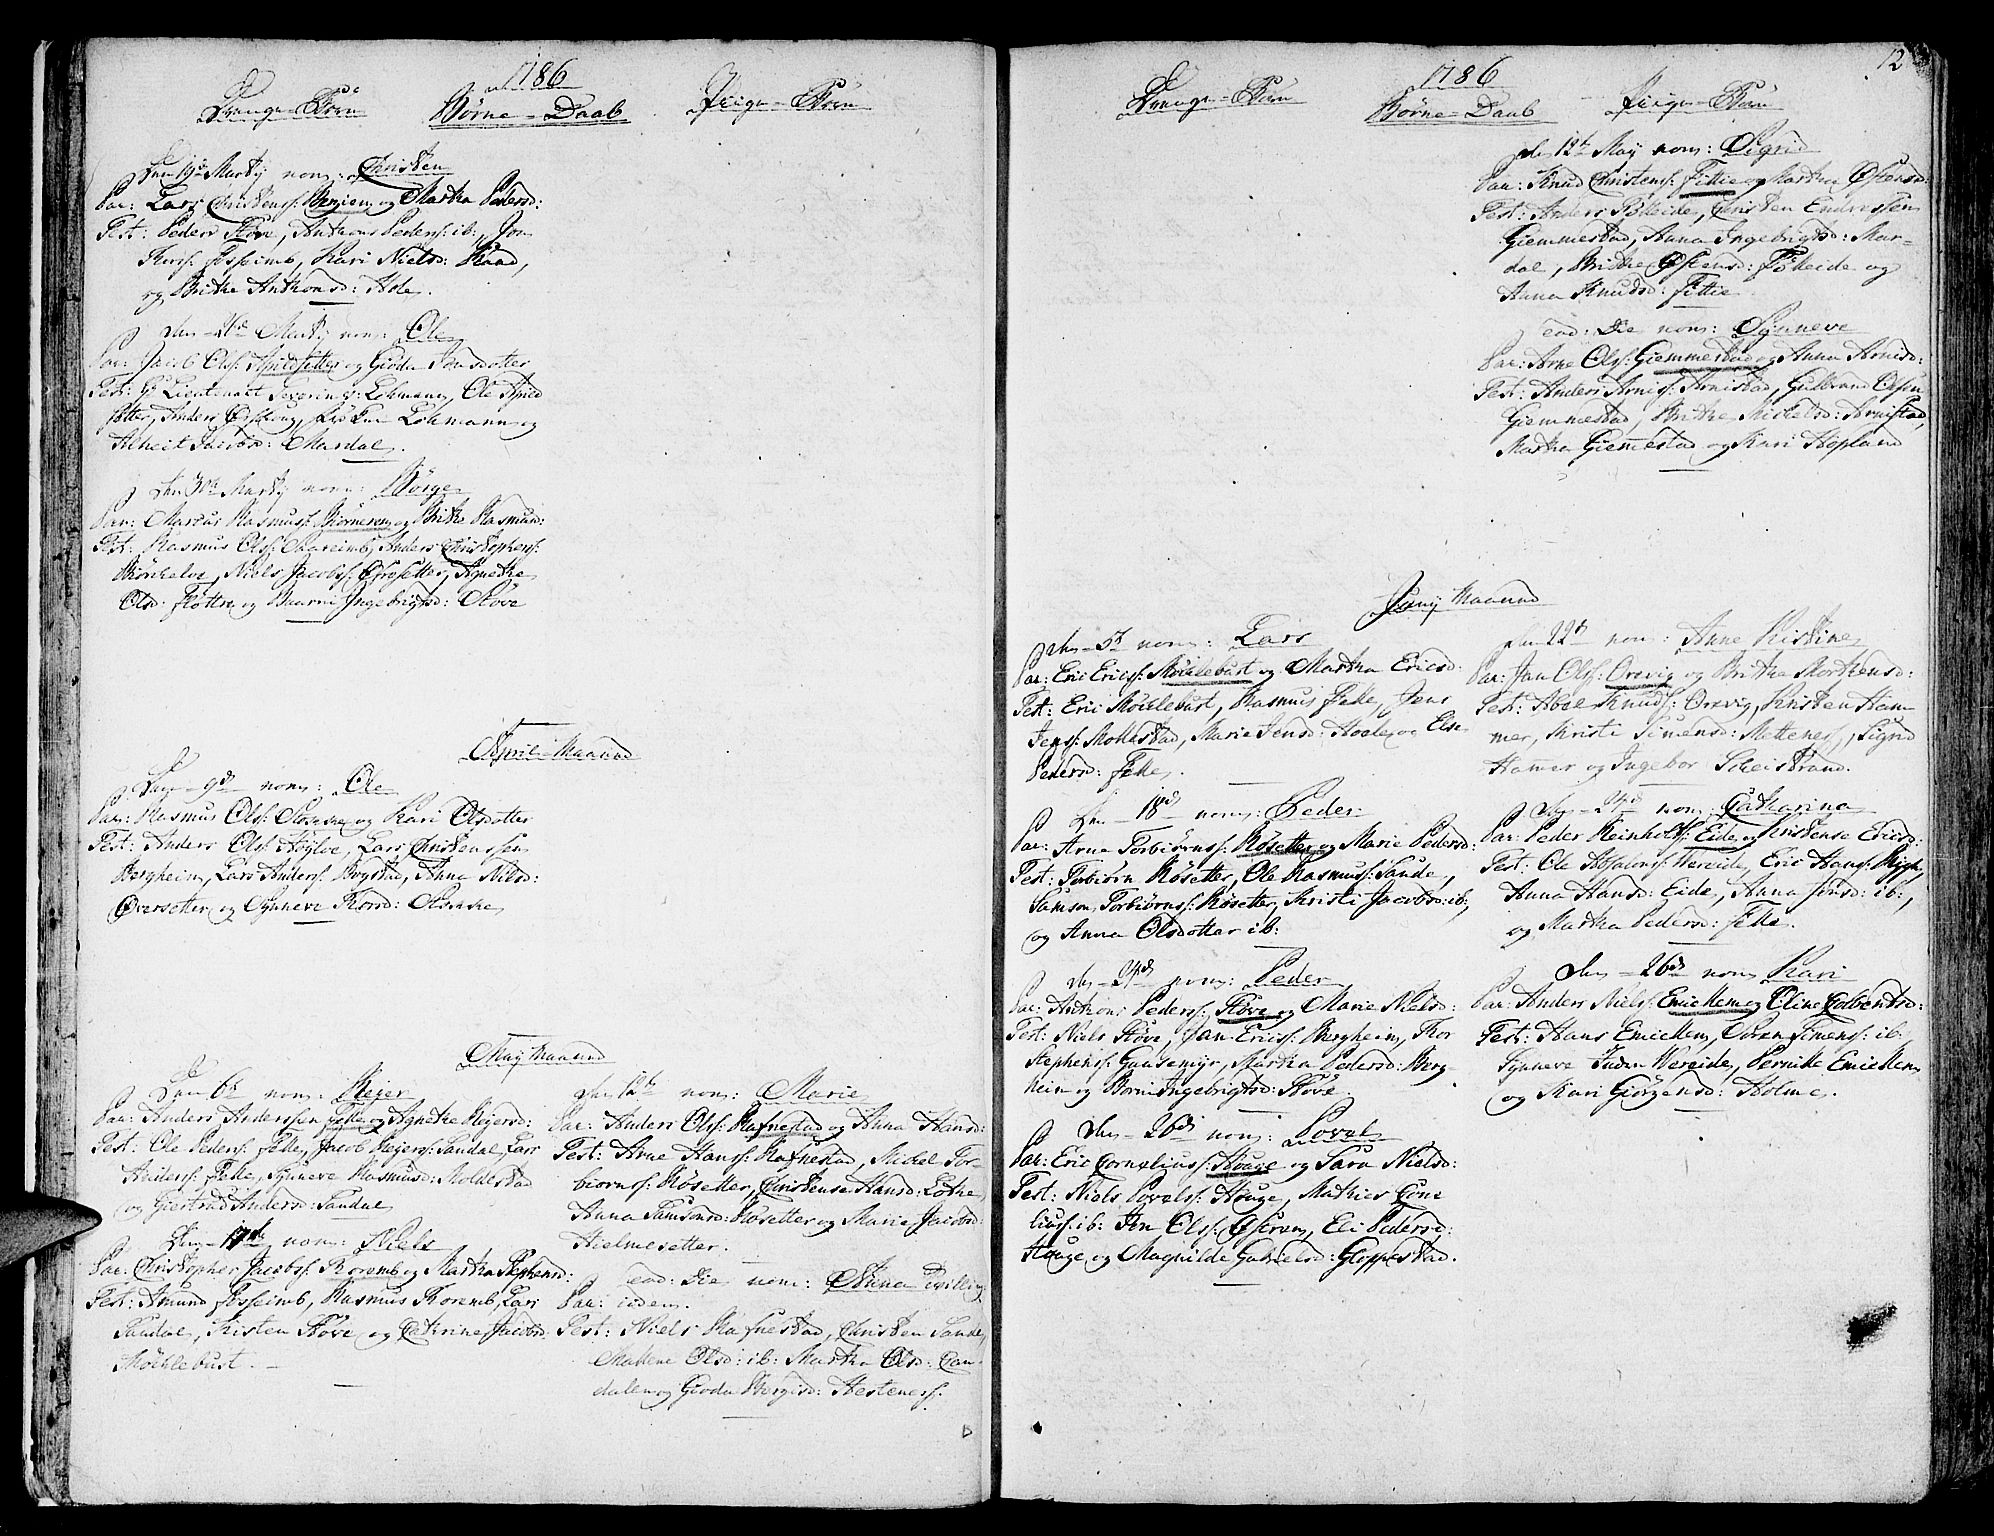 1786
Drenge-Børn Børne-Daab Pige-Børn
Den 19de Martij nom: Christen
Par: Lars Christenss: Bergiem og Martha Pedersd:
Test: Peder Støve, Anthon Peders: ib:, Jon
Thors: Fosseimb, Kari Nielsd: Raad,
og Brithe Anthonsd: Ade.
den 26de Martij nom: Ole
Par: Jacob Olss: Apildsetter og Giøda Jonsdotter
Test: Hr Lieutenant Severin Lohmann, Ole Apild
setter, Anders Østeng, Frøken Lohmann og
Alheit Jacobsd: Mardal.
Den 30te Martij nom: Børge
Par: Marcus Rasmuss: og Brithe Rasmusd:
Test: Rasmus Olss: Aareimb, Anders Christophers:
Biørkelve, Niels Jacobss: Græsetter, Agnethe
Olsd: Fløtten og Baarni Ingebrigtsd: Støve
April Maaned
Den 9de nom: Ole
Par: Rasmus Olss: og Kari Olsdotter
Test: Anders Olss: Lars Christenssen
Bergheim, Lars Anderss: Brystad, Anna Nilsd:
Øversetter og Synneve Rorsd:
May Maaned
Den 6te nom: Reier
Par: Anders Anderssen Feke og Agnethe Reiersd:
Test: Ole Peders: Feke, Jacob Reierss: Sandal, Lars
Anderss: Feke, Synneve Rasmusd: Moldestad
og Giertrud Andersd: Sandal
Den 17de nom: Niels
Par: Christopher Jacobss: Roremb og Martha Stephensd:
Test: Amund Fosseimb, Rasmus Roremb, Lars
Sandal, Kristen Støve og Cathrine Jacobsd:
Møchlebust.
den 12te nom: Marie
Par: Anders Olss: Rafnestad og Anna Hansd:
Test: Arne Hanss: Rafnestad, Michel Tor-
biørnss: Røsetter, Christense Hansd: Lothe,
Anna Samsonsd: Røsetter og Marie Jacobsd:
Hielmesetter.
ead: Die nom: Anna Tvilling
Par: iidem.
Test: Niels Rafnestad, Christen Sande,
Malene Olsd: ib: Martha Olsd:
dalen og Gioda Børgisd: Hesteness:
12
1786
Drenge-Børn Børne-Daab Pige-Børn
den 12te May nom: Sigrid
Par: Knud Christenss: Fittie og Martha Østensd:
Test: Anders Føleide, Christen Endressen
Giemmestad, Anna Ingebrigtsd: Mar-
dal, Brithe Østensd: Føleide og
Anna Knudsd: Fittie
ead: Die nom: Synneve
Par: Arne Olss: Giemmestad og Anna Arnisd:
Test: Anders Arniss: Arnistad, Gulbrand Olsen
Giemmestad, Brithe Mickelsd: Arnistad,
Martha Giemmestad og Kari Hopland
Junij Maaned
den 5te nom: Lars
Par: Eric Ericss: Møchlebust og Martha Ericsd:
Test: Eric Møchlebust, Rasmus Feke, Jens
Jenss: Moldestad, Marie Jensd: og Else
Pedersd: Feke.
Den 18de nom: Peder
Par: Arne Torbiørnss: Røsetter og Marie Pedersd:
Test: Torbiørn Røsetter, Ole Rasmuss: Sande,
Samson Torbiørnss: Røsetter, Kristi Jacobsd: ib:
og Anna Olsdotter ib:
den 24de nom: Peder
Par: Anthon Pederss: Støve og Marie Nielsd:
Test: Niels Støve, Jan Ericss: Bergheim, Thor
Stephenss: Gaasemyr, Martha Pedersd: Berg-
heim og Borni Ingebrigtsd: Støve.
den 26de nom: Povel
Par: Eric Corneliuss: Houge og Sara Nielsd:
Test: Niels Povelss: Houge, Mathies Corne
liuss: ib: Jon Olss: Eli Pedersd:
Houge og Magnilde Gabrielsd: Gloppestad.
den 22de nom: Anne Kistine
Par: Jan Olss: Orevig og Brithe Mortensd:
Test: Abel Knudss: Orevig, Kristen Ham
mer, Kristi Simensd: Metteness, Sigrid
Hammer og Ingebor Scheistrand.
den 24de nom: Catharina
Par: Peder Reinholss: Eide og Kristense Ericsd:
Test: Ole Absalonss: Vereide, Eric Hanss: Rygh,
Anna Hansd: Eide, Anna Jonsd: ib:,
og Martha Pedersd: Feke.
den 26de nom: Kari
Par: Anders Nielss: Emichem og Eline Colbentsd:
Test: Hans Emichem, Søren Simenss: ib:
Synneve Vereide, Pernille Emichem
og Kari Giørgensd: Holme.